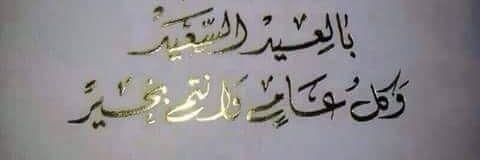 بالعيد السعيد
وكل عام وانتم بخير